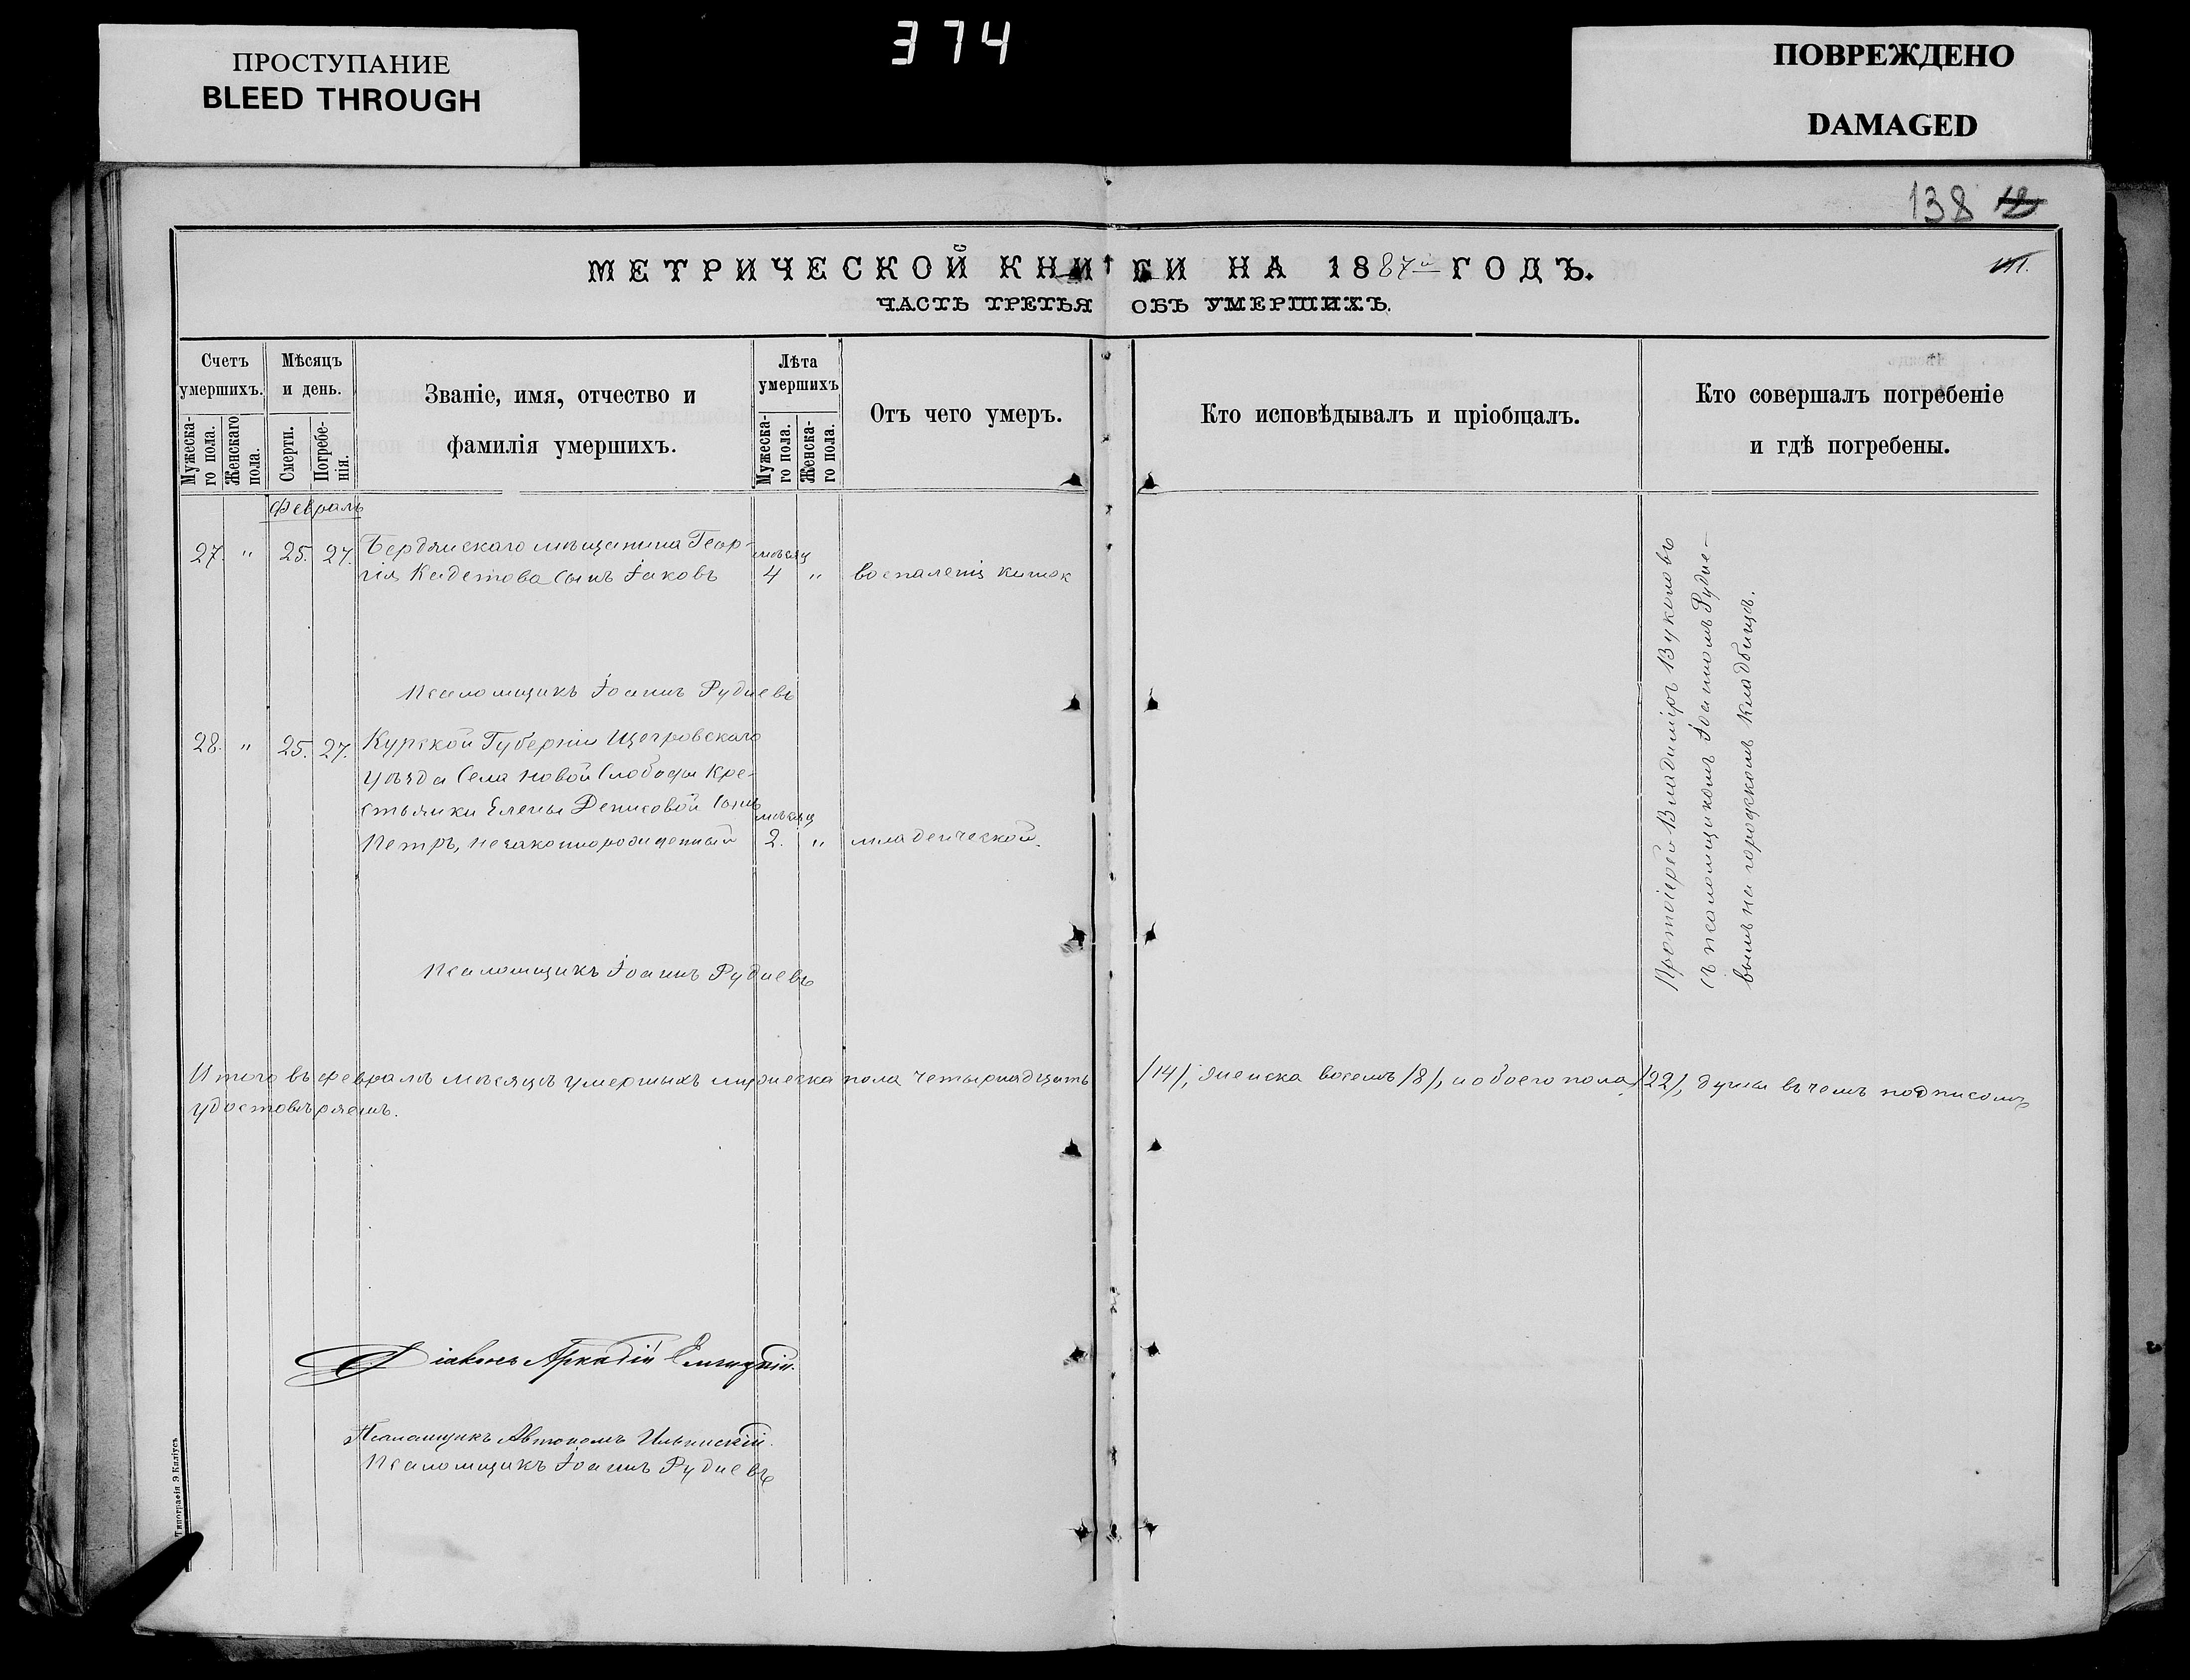 ПРОСТУПАНИЕ
BLEED THROUGH
374
ПОВРЕЖДЕНО
DAMAGED
138
МЕТРИЧЕСКОЙ КНИГИ НА 1887й ГОДЪ.
ЧАСТЬ ТРЕТЬЯ ОБЪ УМЕРШИХЪ.
Счетъ умершихъ.
Мужеска-го пола.
Женскаго пола.
Мѣсяцъ и день.
Смерти.
Погребе-нія.
Званіе, имя, отчество и
фамилія умершихъ.
Лѣта умершихъ
Мужеска-го пола.
Женска-го пола.
Отъ чего умеръ.
Кто исповѣдывалъ и пріобщалъ.
Кто совершалъ погребеніе
и гдѣ погребены.
Февраль
27. " 25. 27. Бердянскаго мѣщанина Геор- мѣсяц
гія Кадетова сынъ Іаковъ 4 " воспаленія кишок
Псаломщикъ Іоаннъ Рудневъ
28. " 25. 27. Курской Губерніи Щигровскаго
уѣзда села Новой Слободы Кре-
стьянки Елены Денисовой сынъ мѣсяц
Петръ, незаконнорожденный 2. " младенческой.
Псаломщикъ Іоаннъ Рудневъ
Протоіерей Владиміръ Вуколовъ
съ псаломщикомъ Іоанномъ Рудне-
вымъ на городскомъ кладбищѣ.
Итого въ февралѣ мѣсяцѣ умершихъ мужеска пола четырнадцать /14/, женска восемь /8/, и обоего пола /22/, душы въ чемъ подписомъ
удостовѣряемъ.
Діаконъ Аркадій
Псаломщикъ Автономъ Ильинскій.
Псаломщикъ Іоаннъ Рудневъ
Типографія Э. Килиусъ